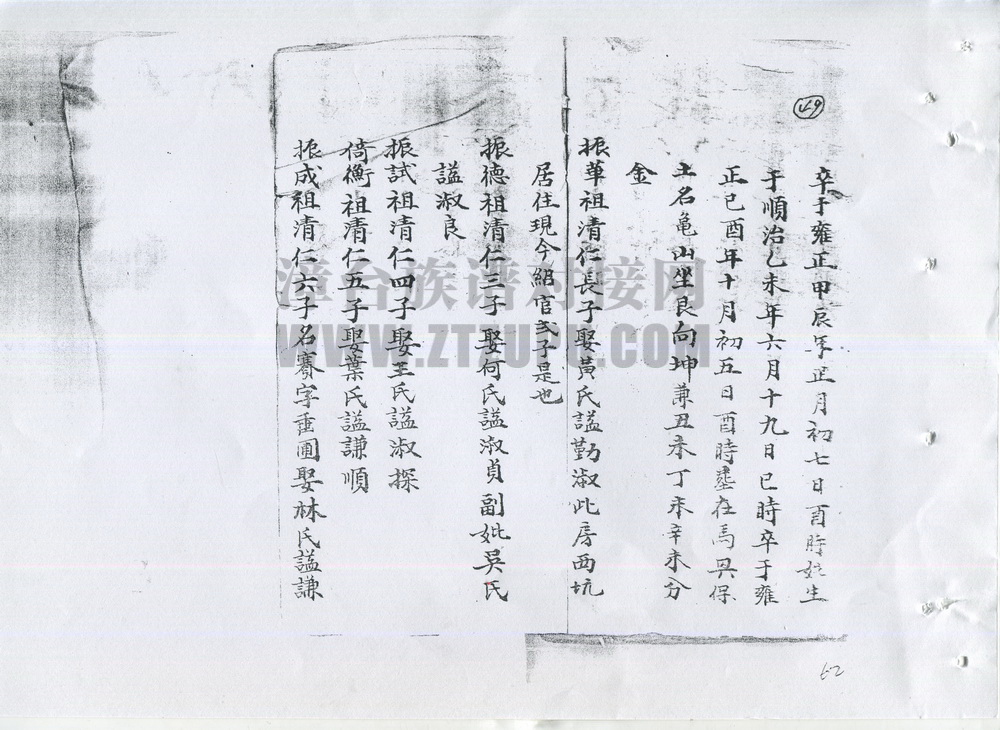 49
卒于雍正甲辰年正月初七日酉時妣生
于順治乙未年六月十九日巳時卒于雍
正己酉年十月初五日酉時塟在馬巽保
土名亀山坐艮向坤兼丑未丁未辛未分
金
振華祖清仁長子娶黄氏謚勤淑此房西坑
居住現今紹官弍子是也
振德祖清仁三子娶何氏謚淑貞副妣吳氏
謚淑良
振試祖清仁四子娶王氏謚淑探
倚衡祖清仁五子娶葉氏謚謙順
振成祖清仁六子名賽字重圃娶林氏謚謙
62
漳台族谱对接网
WWW.ZTZUPU.COM